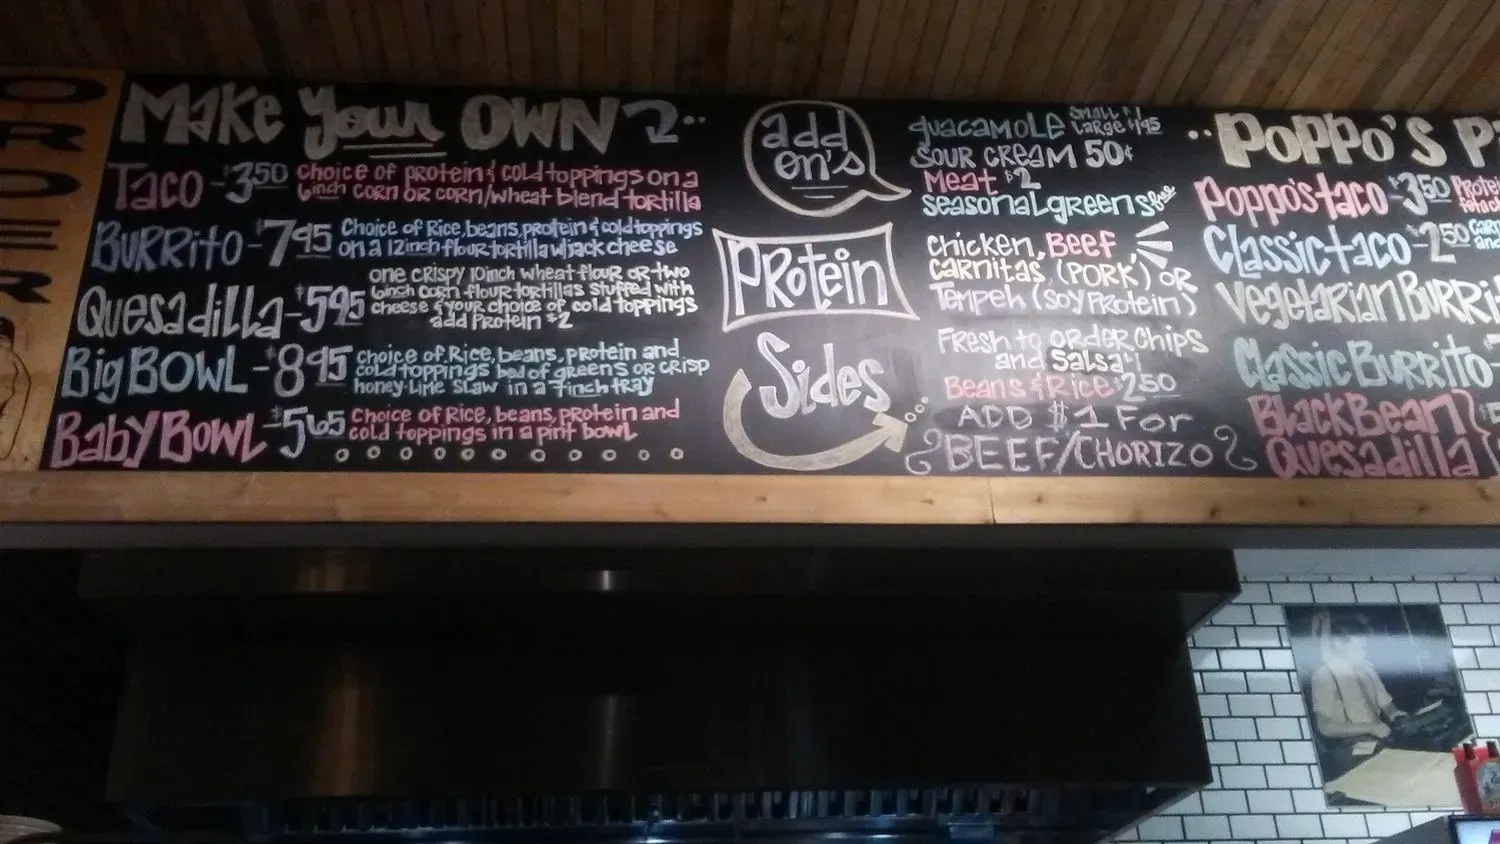 ORDER
Make Your OWN
Taco - $3.50 Choice of protein & cold toppings on a
6inch corn or corn/wheat blend tortilla
Burrito - $7.95 Choice of Rice, beans, protein & cold toppings
on a 12inch flour tortilla w/jack cheese
Quesadilla - $5.95 one crispy 10inch wheat flour or two
6inch corn flour tortillas stuffed with
cheese & your choice of cold toppings
add Protein $2
Big BOWL - $8.95 Choice of Rice, beans, protein and
cold toppings bed of greens or crisp
honey-lime slaw in a 7inch tray
Baby Bowl - $5.65 Choice of Rice, beans, protein and
cold toppings in a pint bowl
add
on's
guacamole Small $1
Large $1.95
Sour cream 50¢
Meat $2
Seasonal greens free
Protein
chicken, Beef
carnitas, (pork) or
Tempeh (soy protein)
Sides
Fresh to order Chips
and Salsa
Beans & Rice $2.50
ADD $1 For
BEEF/CHORIZO
Poppo's
Poppo's taco $3.50
Classic taco - $2.50
Vegetarian
Classic Burrito
Black Bean
Quesadilla